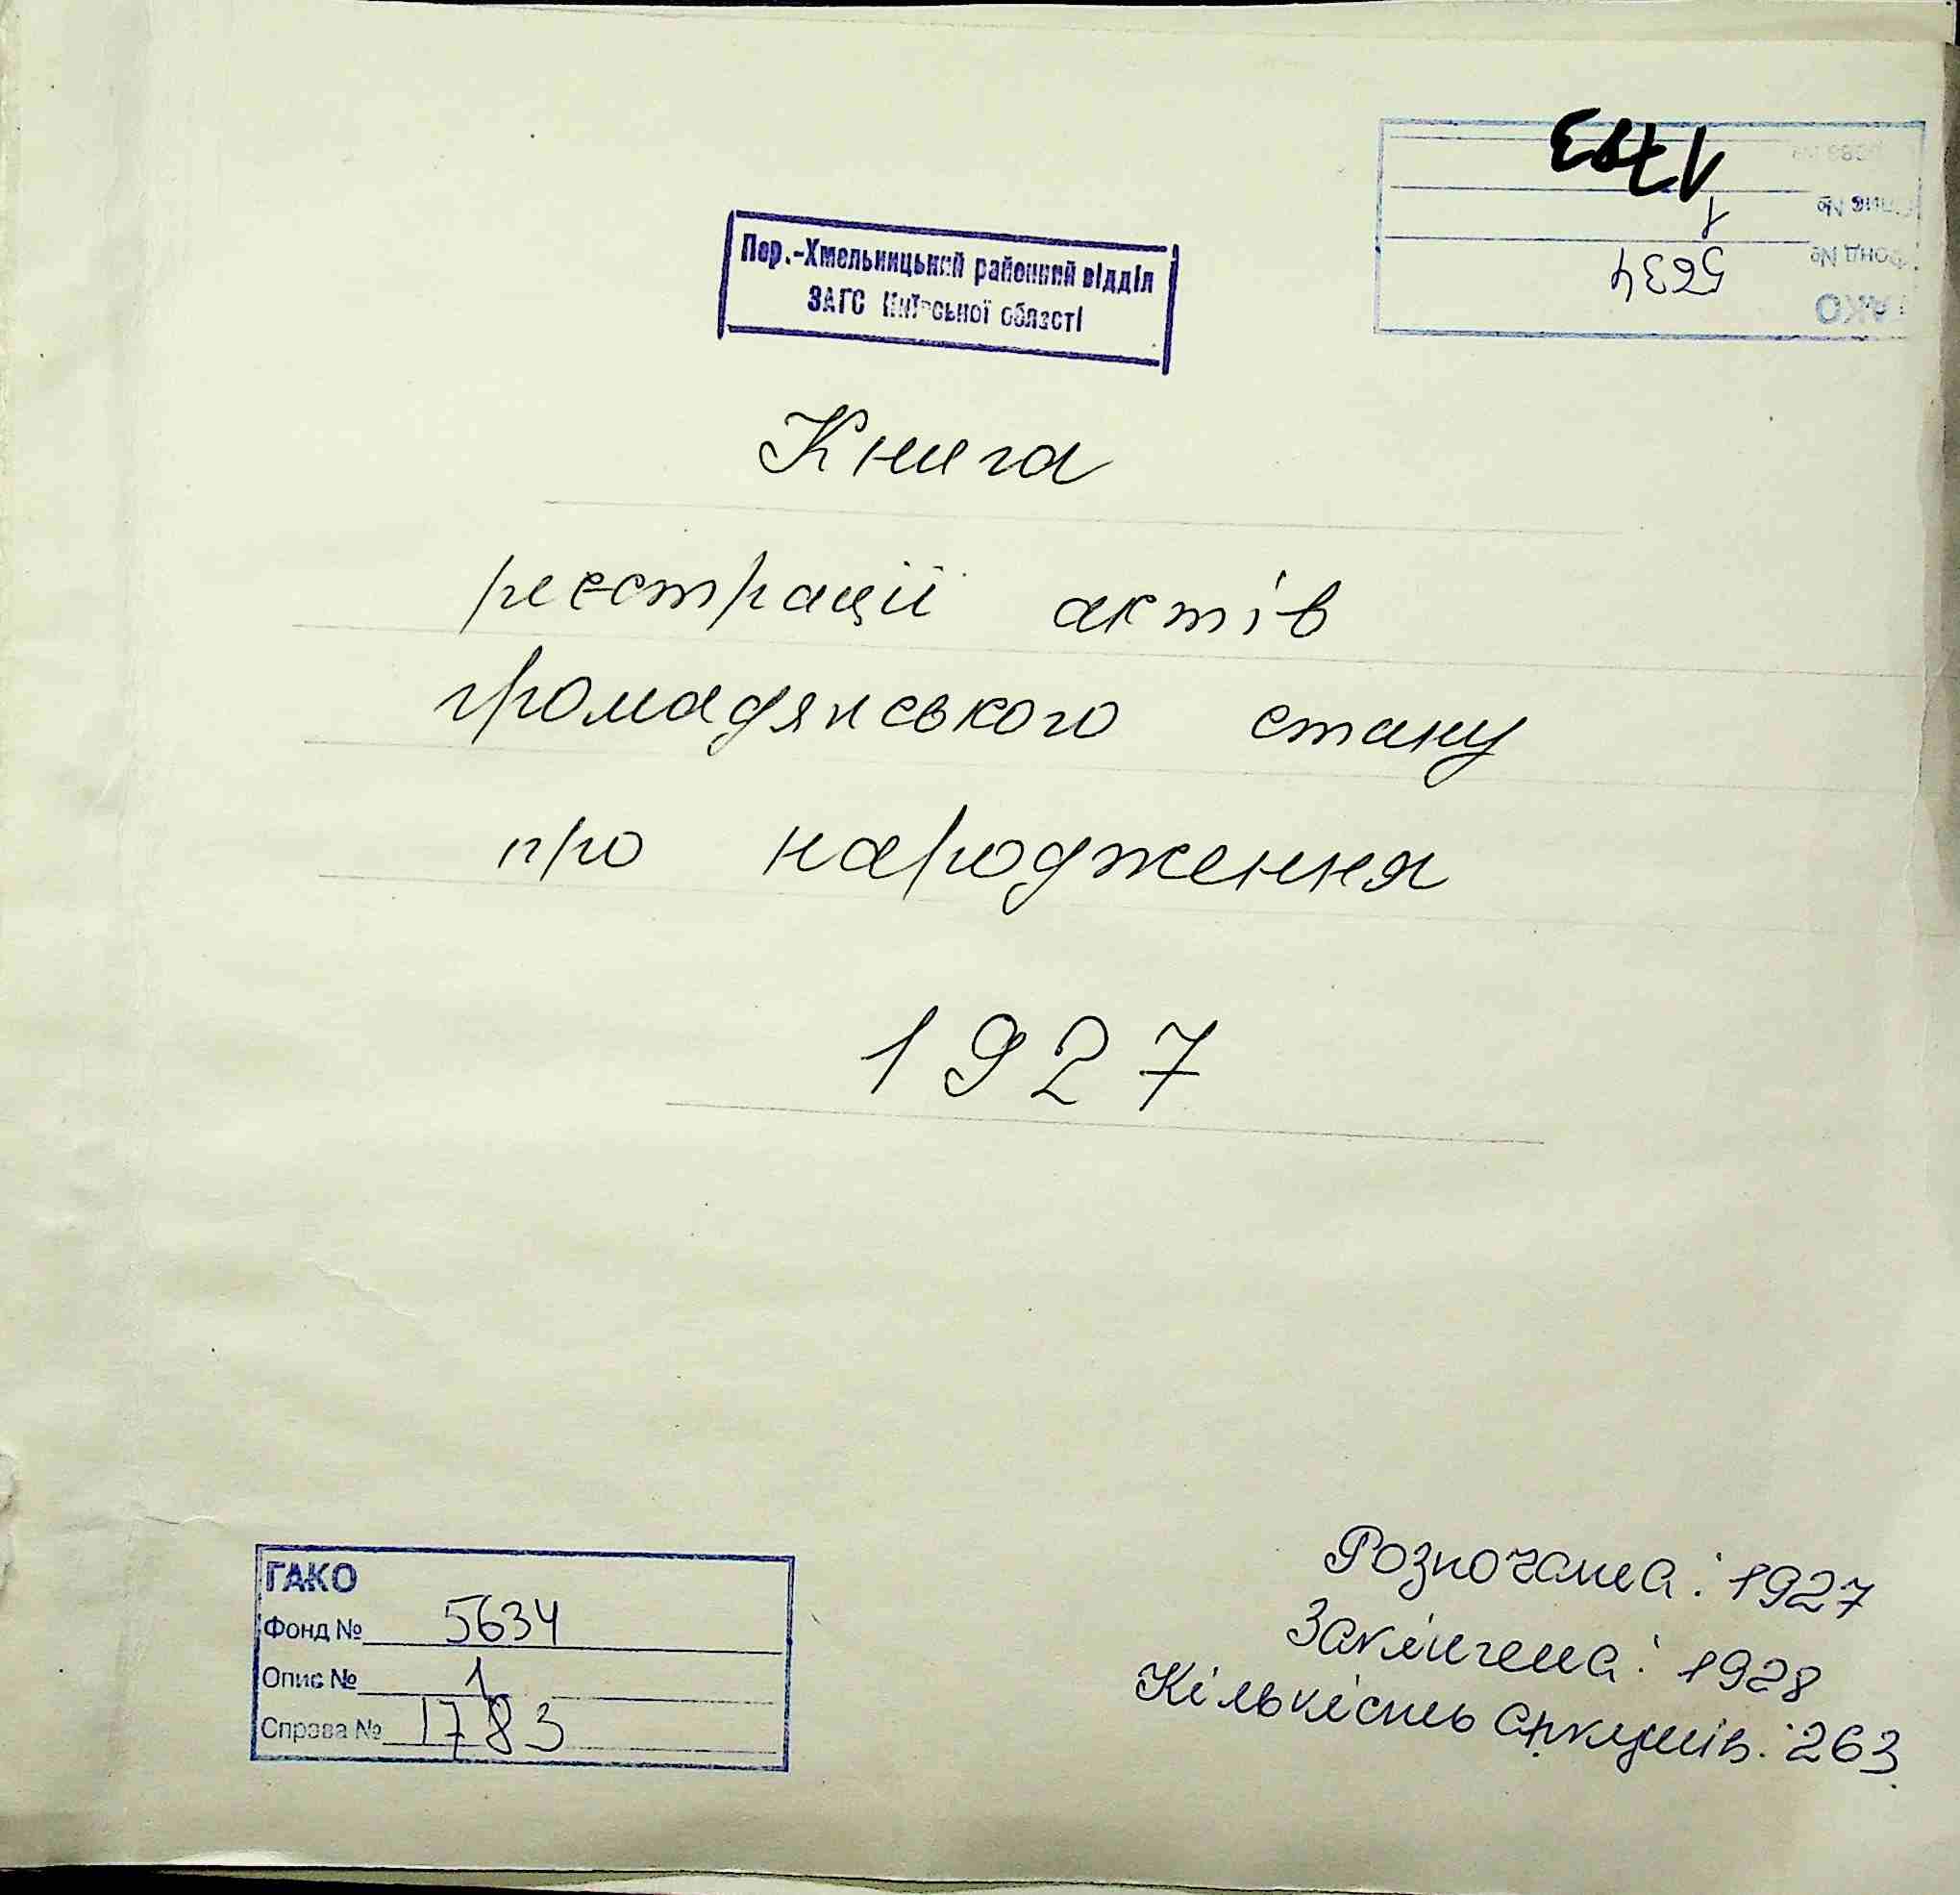 Пер.-Хмельницький районний відділ
ЗАГС Київської області
Справа №
1783
Опис № 1
Фонд № 5634
ГАКО
Книга
реєстрації актів
громадянського стану
про народження
1927
ГАКО
Фонд № 5634
Опис № 1
Справа № 1783
Розпочата: 1927
Закінчена: 1928
Кількість аркушів: 263